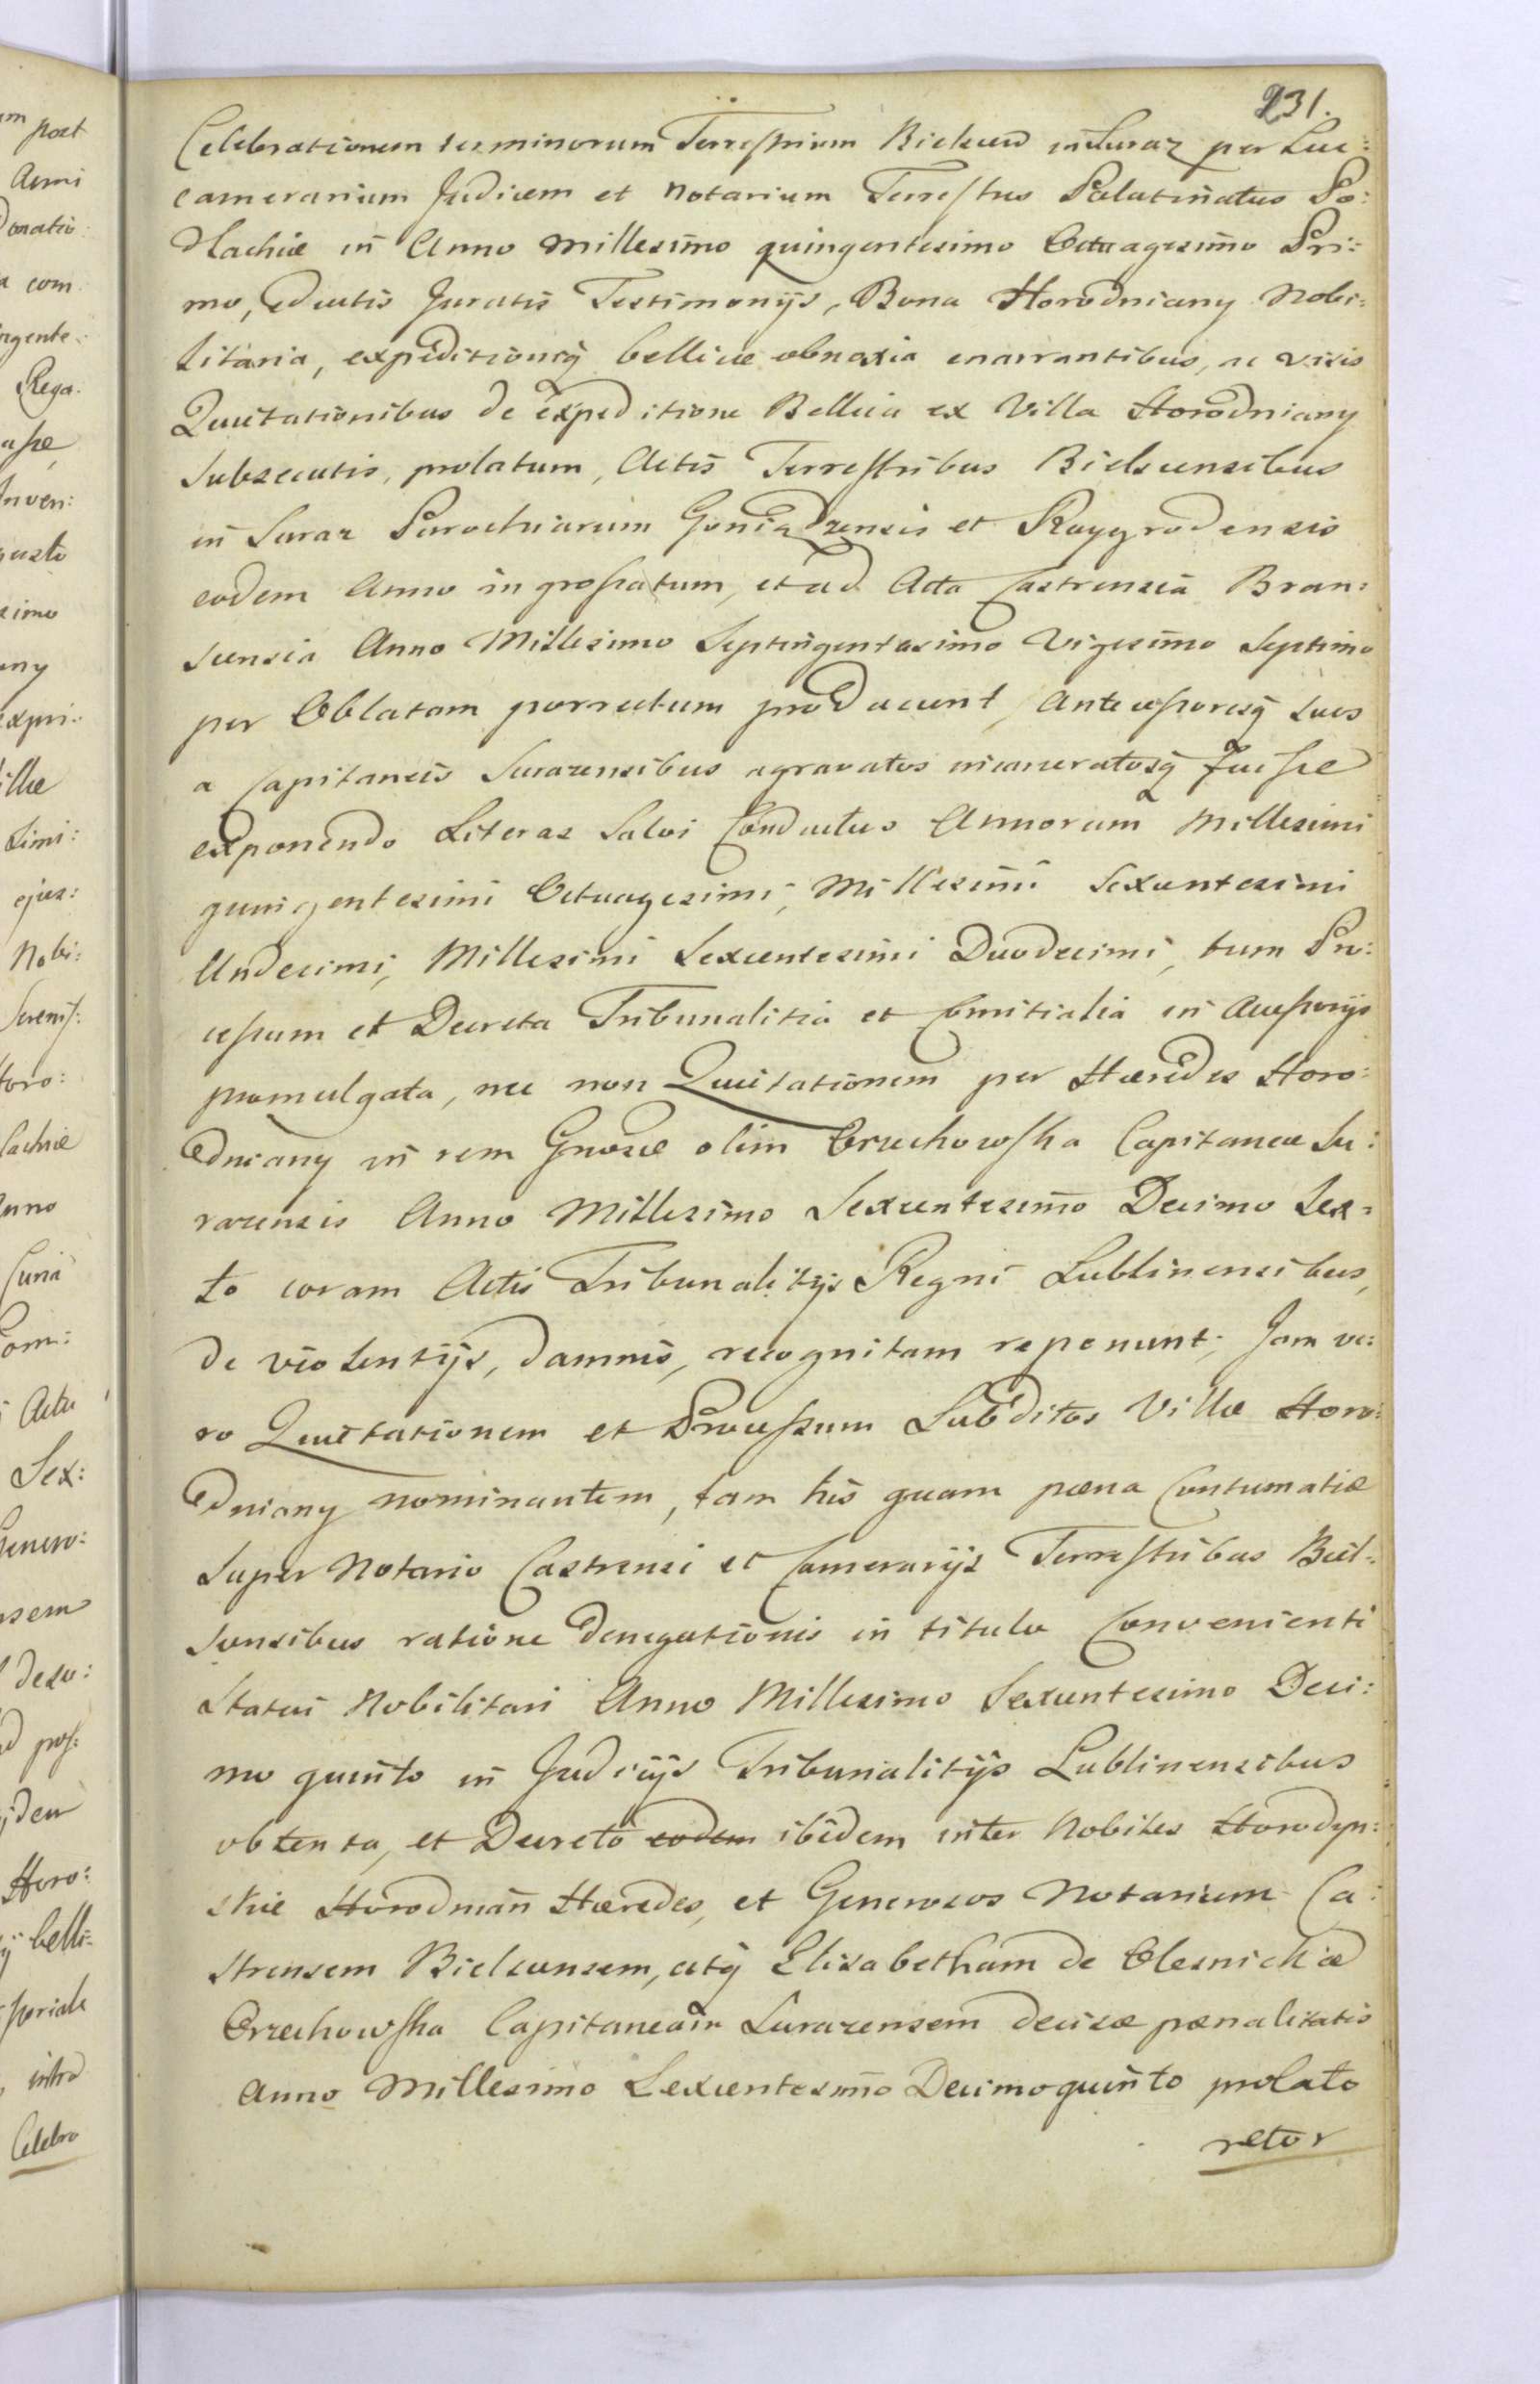 231.
Celebrationem terminorum Terrestrium Bielscen in Suraz per Suc:
camerarium Judicem et Notarium Terrestres Palatinatus Po:
dlachiæ in Anno Millesimo quingentesimo Octuagesimo Pri:
mo, eductis Juratis Testimonijs, Bona Horodniany Nobi:
litaria, expeditioniq̃ bellicæ obnoxia enarrantibus, ac visis
Quietationibus de expeditione Bellica ex Villa Horodniany
Subsecutis, prolatum, Actis Terrestribus Bielscensibus
in Suraz Parochiarum Goniądzensis et Raygrodensis
eodem Anno ingrossatum, et ad Acta Castrensia Bran:
scensia Anno Millesimo Septingentesimo Vigesimo Septimo
per Oblatam porrectum producunt, Antecessoresq̃ suos
a Capitaneis Surazensibus agravatos incarceratosq̃ fuisse
exponendo Literas Salvi Conductus Annorum Millesimi
quingentesimi Octuagesimi, Millesimi Sexcentesimi
Undecimi, Millesimi Sexcentesimi Duodecimi, tum Pro:
cessum et Decreta Tribunalitia et Comitialia in Accessorijs
promulgata, nec non Quietationem per Hæredes Horo:
dniany in rem Gnosæ olim Orzechowska Capitaneæ Su:
razensis Anno Millesimo Sexcentesimo Decimo Sex:
to coram Actis Tribunalitijs Regni Lublinensibus,
de violentijs, damnis, recognitam reponunt; Jam ve:
ro Quietationem et Processum Subditos Villæ Horo:
dniany nominantem, tam his quam pæna Contumatiæ
super Notario Castrensi et Camerarijs Terrestribus Biel:
scensibus ratione denegationis in titulo Convenienti
Statui Nobilitari Anno Millesimo Sexcentesimo Deci:
mo quinto in Judicijs Tribunalitijs Lublinensibus
obtenta, et Decreto eodem ibidem inter Nobiles Horodyn:
skie Horodnian Hæredes, et Generosos Notarium Ca:
strensem Bielscensem, atq̃ Elisabetham de Olesnickie
Orzechowska Capitaneam Surazensem decisæ pænalitatis
Anno Millesimo Sexcentesimo Decimoquinto prolato
retor